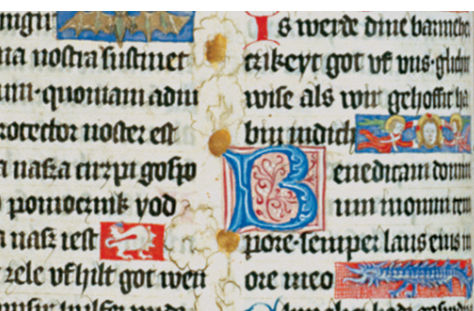 na nostra sustinet
um quoniam adiu
rotector noster est
a nasza cirzpi gospo
pomocnik yod
a nasz iest
zele vfhilt got wen
Is werde dine barmhe
czikeyt got vf vns glich
wise als wir gehoffit ha
bin indich
Benedicam domin
um inomni tem
pore semper laus eius in
ore meo